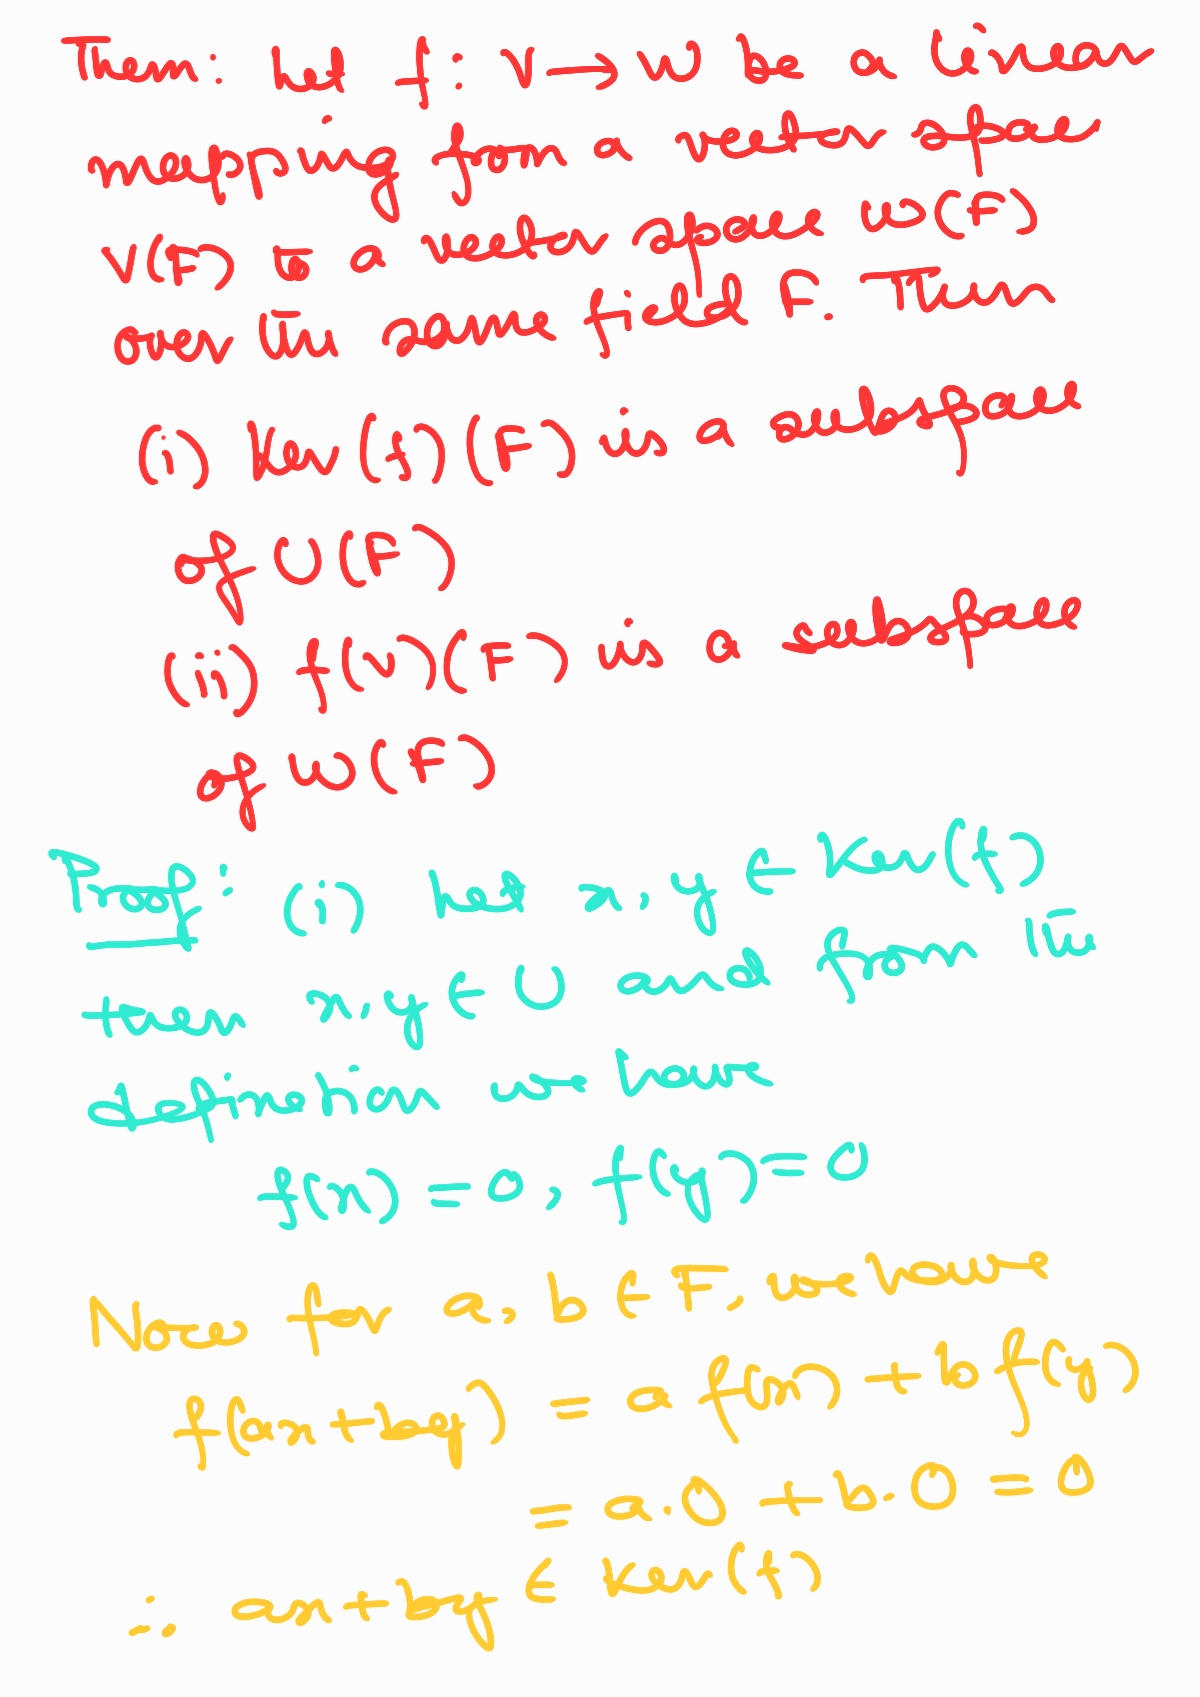 Them: Let f: V→W be a linear
mapping from a vector space
V(F) to a vector space W(F)
over the same field F. Then
(i) Ker(f)(F) is a subspace
of U(F)
(ii) f(v)(F) is a subspace
of W(F)
Proof: (i) Let x, y ∈ Ker(f)
then x, y ∈ U and from the
definetion we have
f(x) = 0, f(y) = 0
Now for a, b ∈ F, we have
f(ax+by) = a f(x) + b f(y)
= a.0 + b.0 = 0
∴ ax+by ∈ Ker(f)